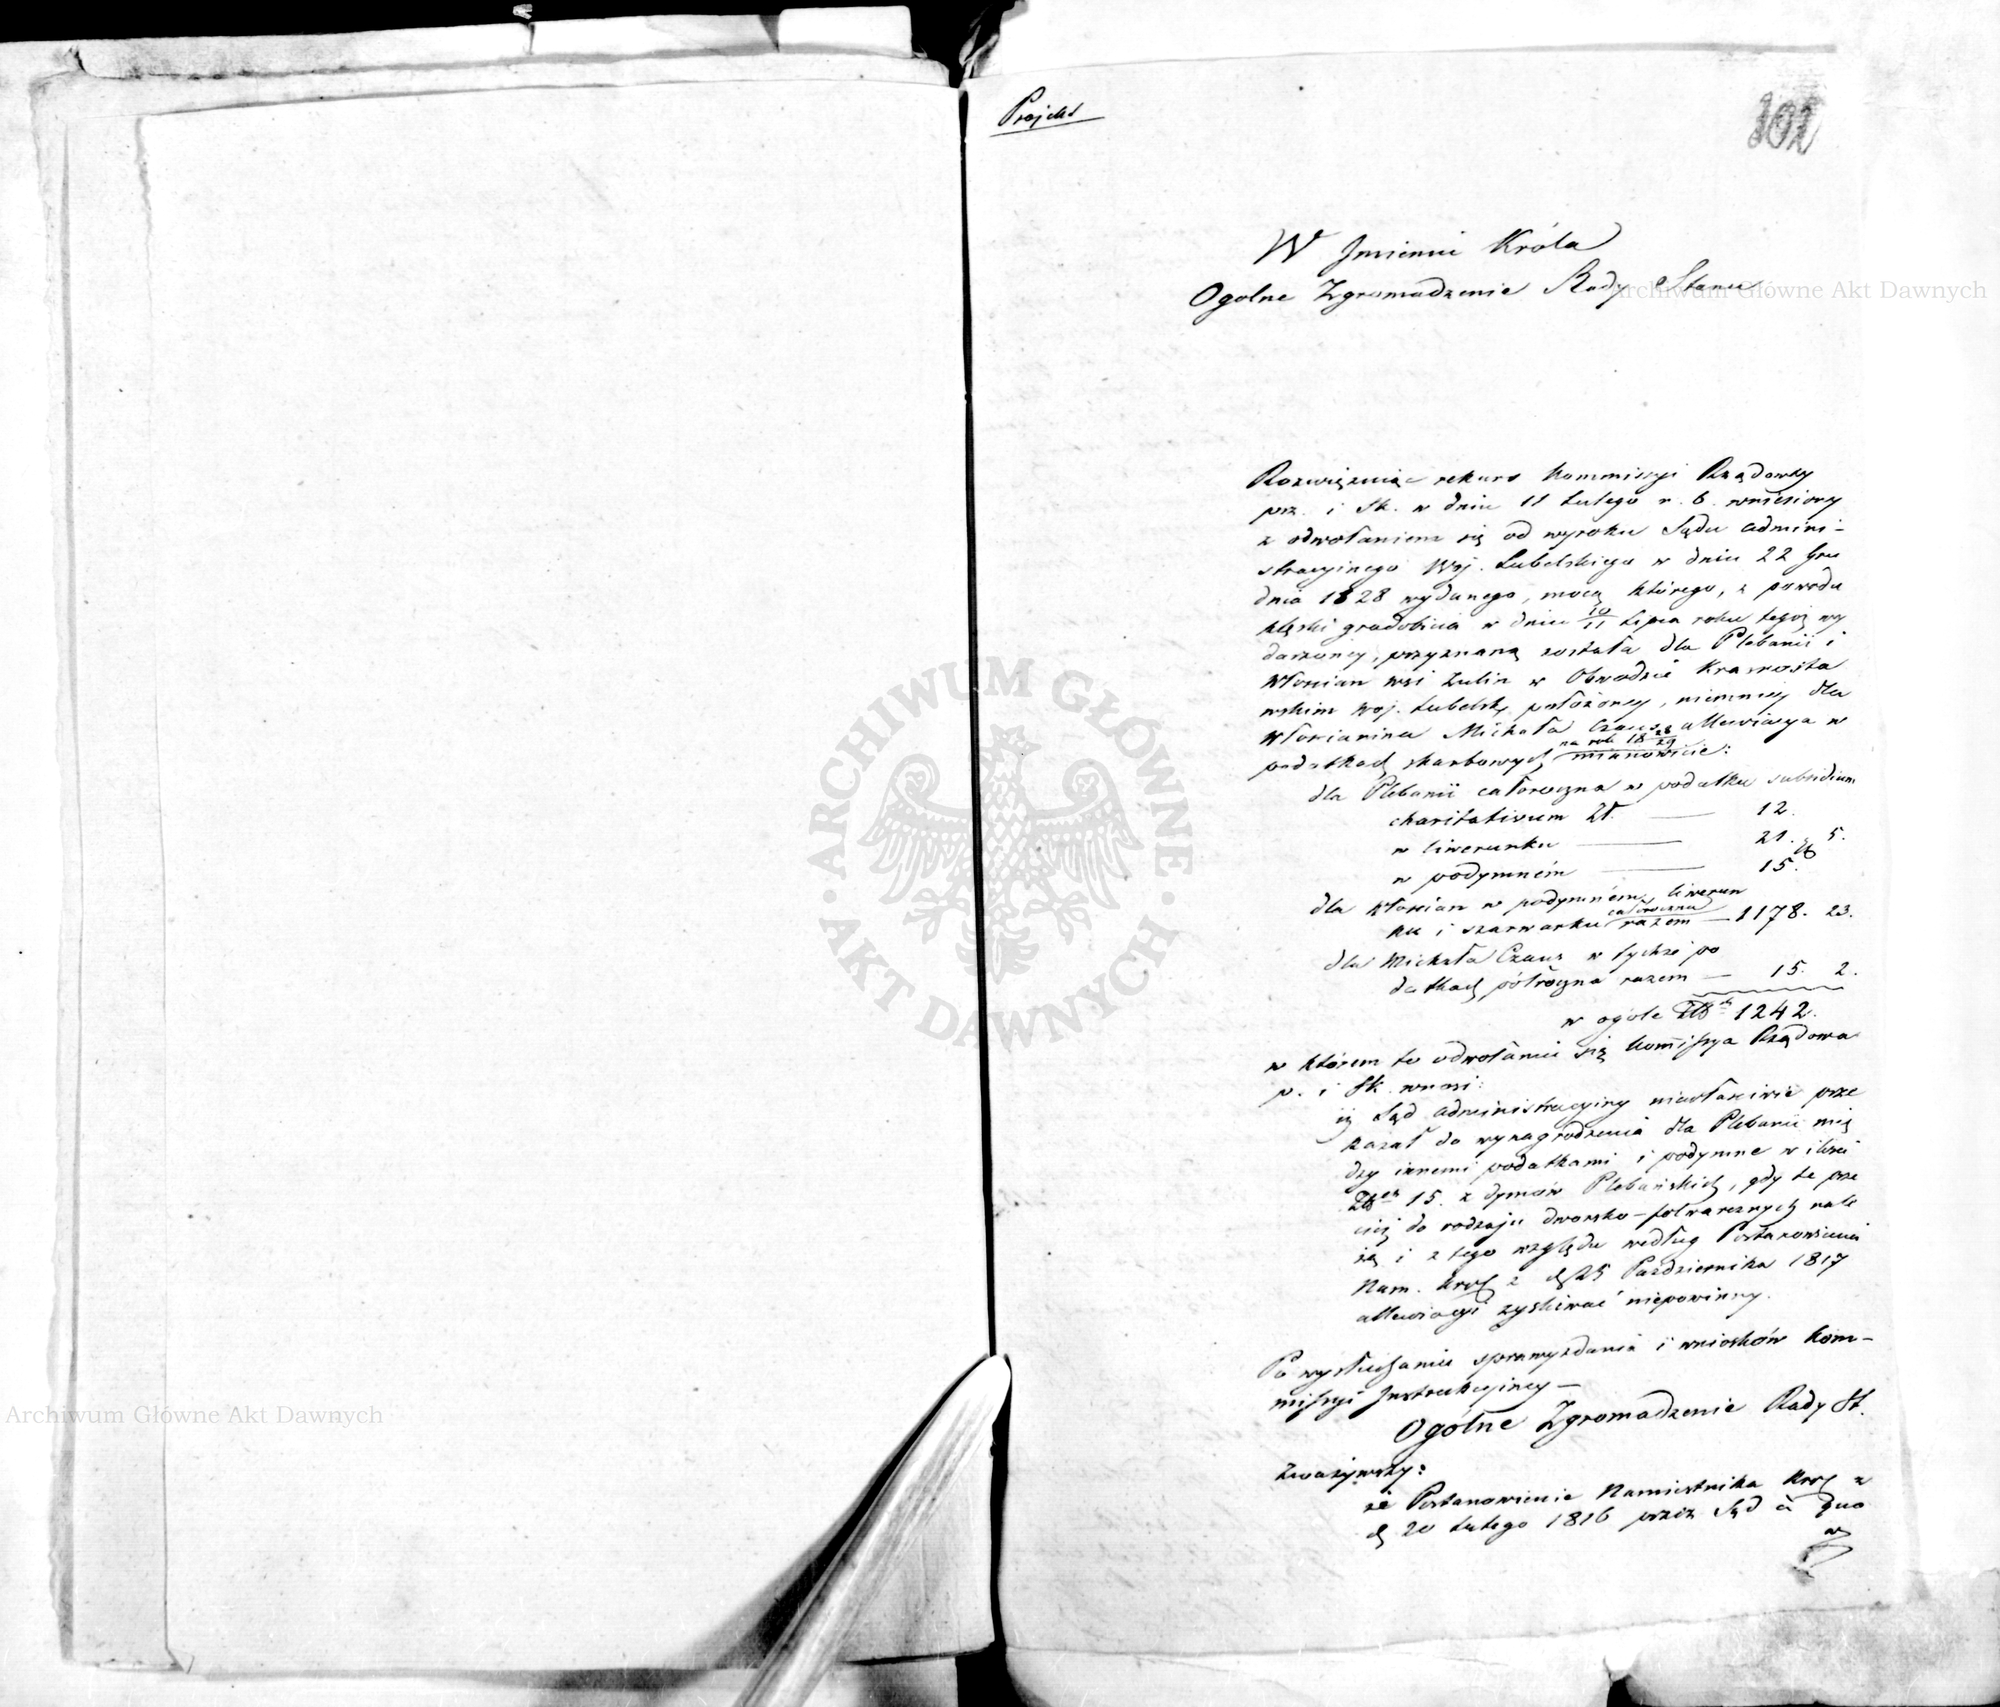 Projekt
102
W Jmieniu Króla
Ogolne Zgromadzenie Rady Stanu
Rozwiązuiąc rekurs Kommissyi Rządowey
prz. i Sk. w dniu 11 Lutego r. b. wniesiony
z odwołaniem się od wyroku Sądu admini-
stracyinego Woj. Lubelskiego w dniu 22 Gru
dnia 1828 wydanego, mocą którego, z powodu
klęski gradobicia w dniu 10/11 Lipca roku tegoż wy
darzoney, przyznaną została dla Plebanii i
Włościan wsi Żulin w Obwodzie Krasnosta
wskim Woj. Lubelsk. położoney, niemniey dla
Włościanina Michała Czaus allewiacya w
podatkach skarbowych na rok 1828/29 mianowicie:
dla Plebanii całoroczna w podatku subsidium
charitativum Zł. — 12.
w liwerunku — 21. 5.
w podymném — 15.
dla Włościan w podymném, liwerun
ku i szarwarku całoroczna razem — 1178. 23.
dla Michała Czaus w tychże po
datkach półroczna razem — 15. 2.
w ogóle Złp 1242.
w którem to odwołaniu się Kommissya Rządowa
p. i Sk. wnosi:
iż Sąd administracyiny niewłaściwie prze
kazał do wynagrodzenia dla Plebanii mię
dzy innemi podatkami i podymne w ilości
Złp 15. z dymów Plebańskich, gdy te prze
cież do rodzaju dworsko-folwarcznych nale
żą i z tego względu według Postanowienia
Nam. Król z d. 25 Października 1817
allewiacyi zyskiwać niepowinny.
Po wysłuchaniu sprawozdania i wniosków Kom-
missyi Jnstrukcyiney —
Ogólne Zgromadzenie Rady St.
Zważywszy:
że Postanowienie Namiestnika Król z
d. 20 Lutego 1816 przez Sąd a quo
Archiwum Główne Akt Dawnych
Archiwum Główne Akt Dawnych
ARCHIWUM GŁÓWNE AKT DAWNYCH